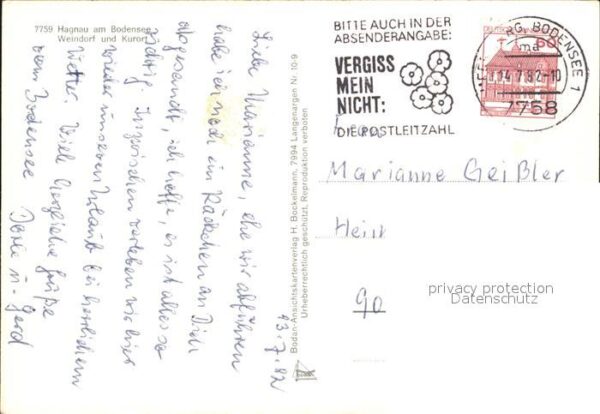 7759 Hagnau am Bodensee
Weindorf und Kurort
13.7.82
Liebe Marianne, ehe wir abfuhren
habe ich noch ein Päckchen an Dich
abgesandt, ich hoffe, es ist alles so
richtig. Inzwischen verleben wir hier
wieder unseren Urlaub bei herrlichem
Wetter. Viele herzliche Grüße
vom Bodensee
u. Gerd
Bodan-Ansichtskartenverlag H. Bockelmann, 7994 Langenargen Nr. 10-9
Urheberrechtlich geschützt, Reproduktion verboten
BITTE AUCH IN DER
ABSENDERANGABE:
VERGISS
MEIN
NICHT:
DIE POSTLEITZAHL
60
RG, BODENSEE 1
md
14.7.82-10
7758
Frau
Marianne Geißler
Heim
90
privacy protection
Datenschutz